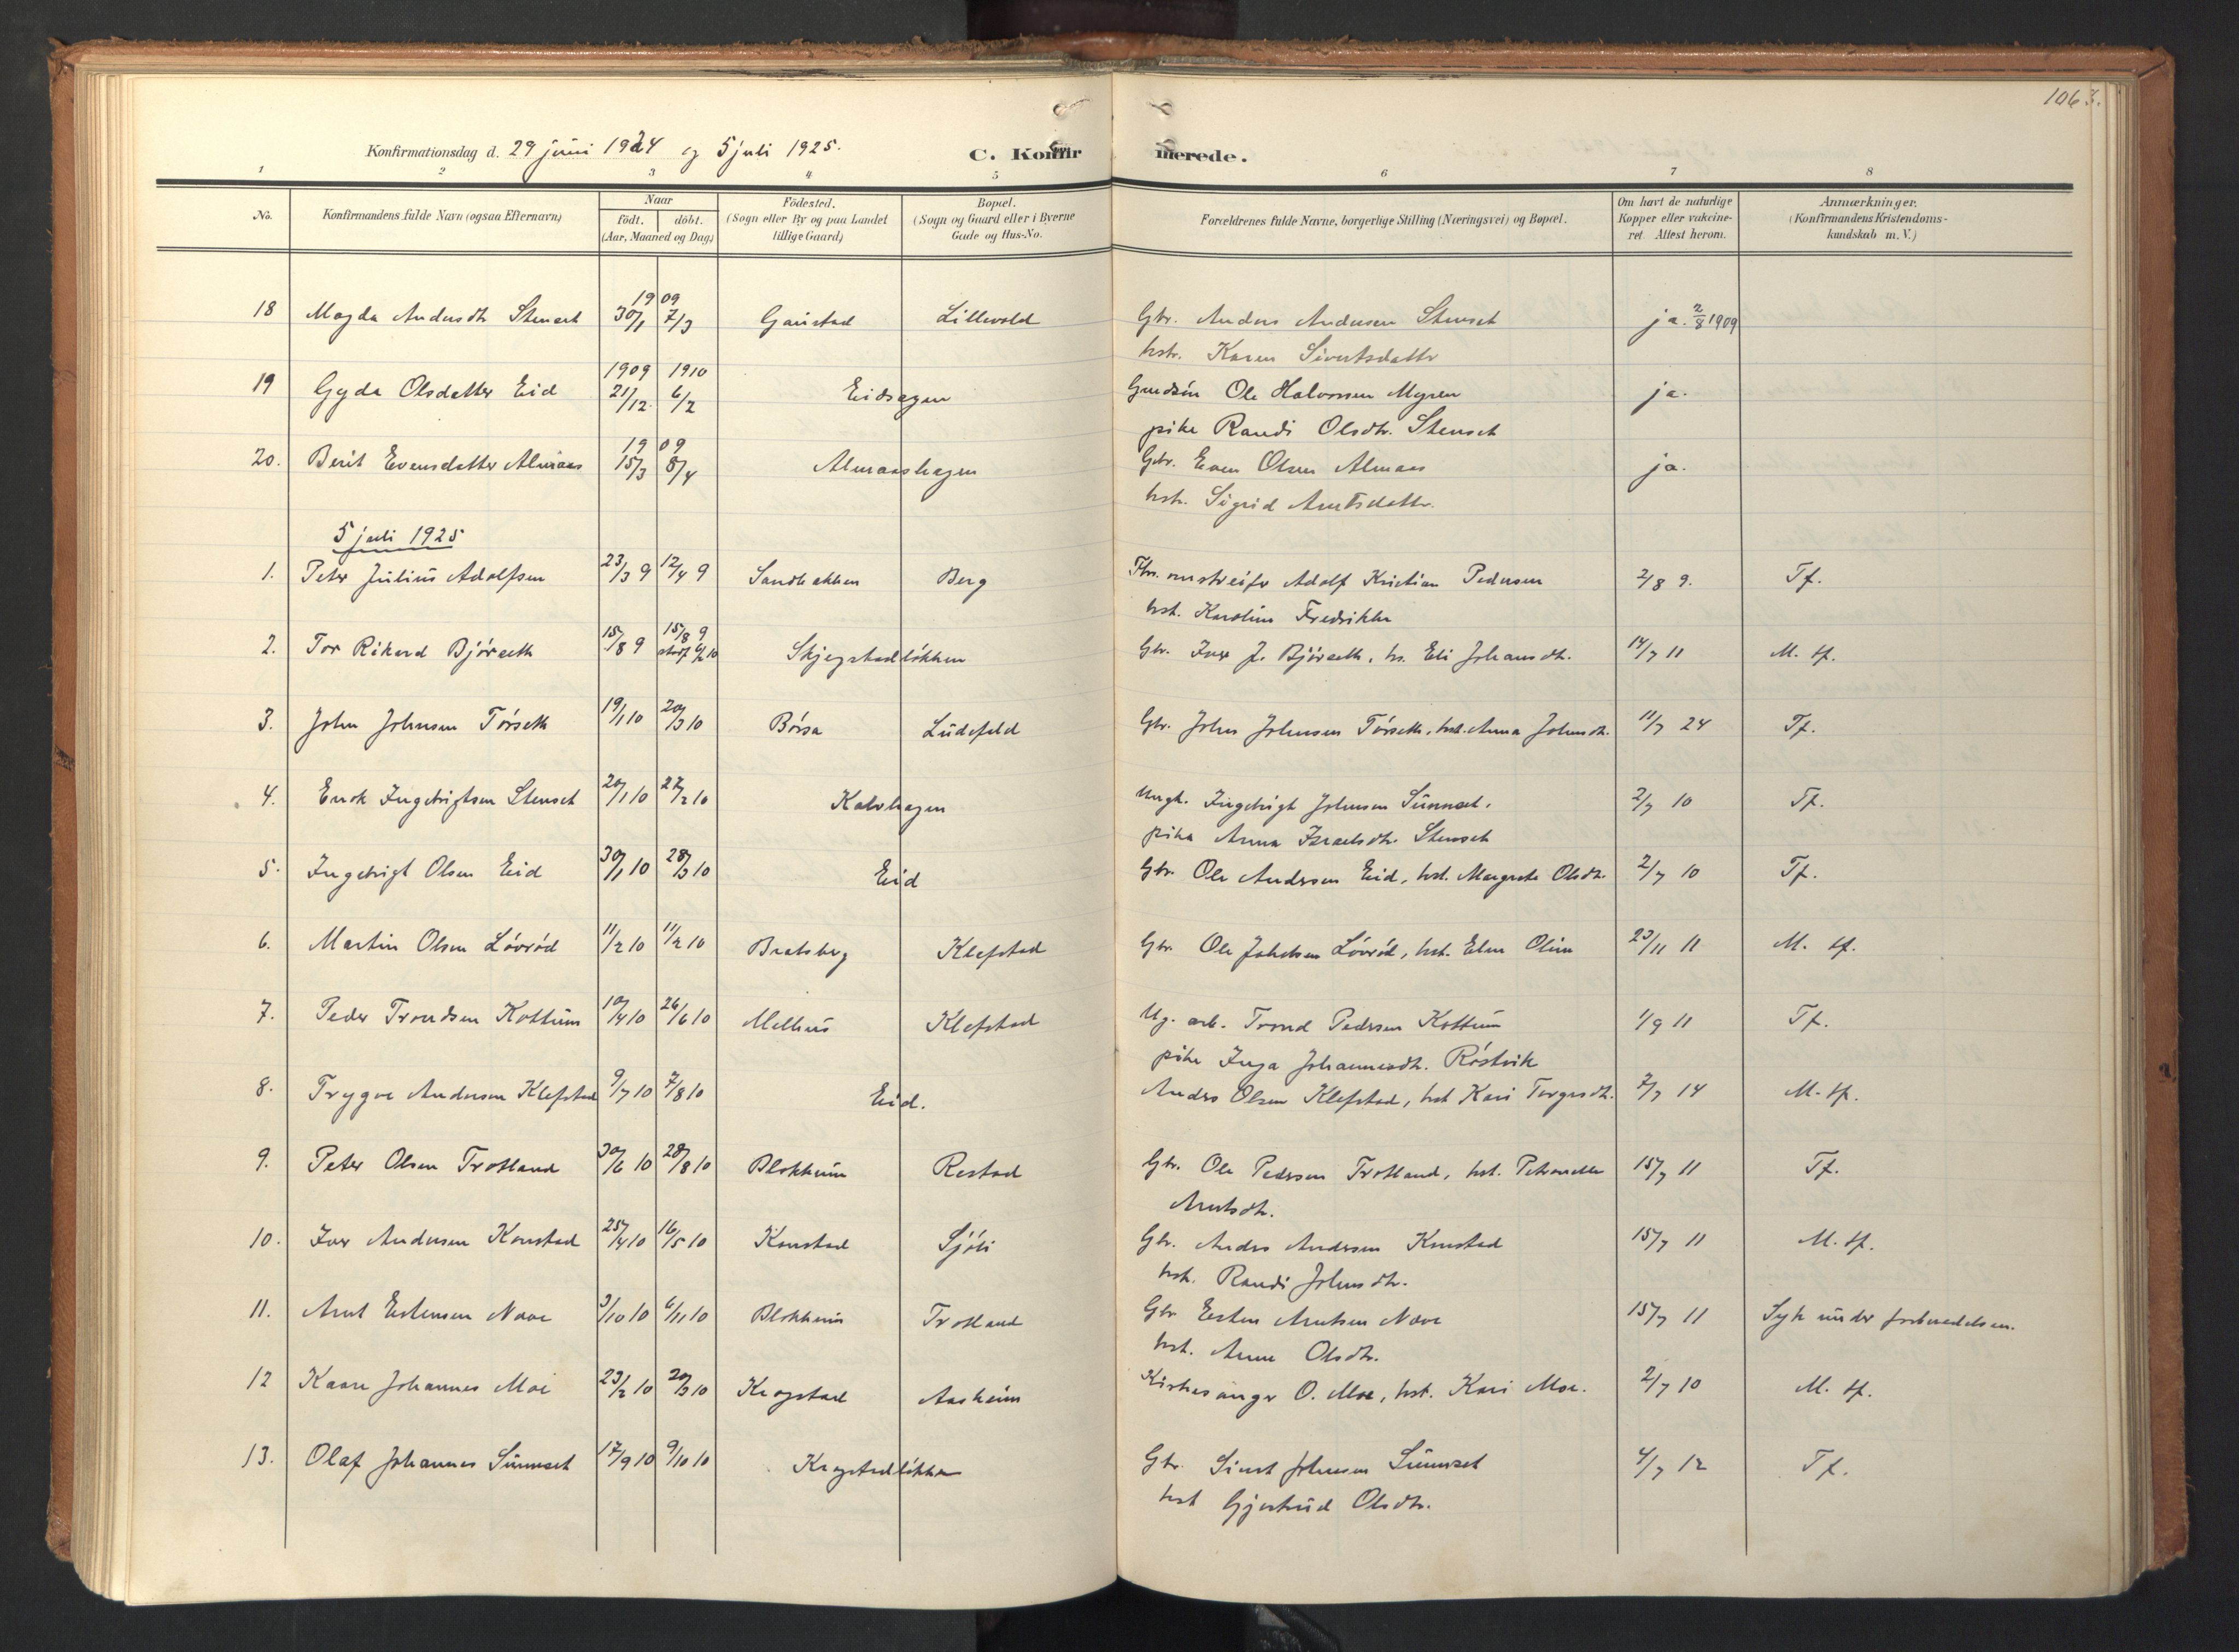 106
Konfirmationsdag d. 29 juni 1924 og 5 juli 1925.
C. Konfirmerede.
1 2 3 4 5 6 7 8
No.
Konfirmandens fulde Navn (ogsaa Efternavn)
Naar
født. døbt.
(Aar, Maaned og Dag)
Fødested.
(Sogn eller By og paa Landet
tillige Gaard)
Bopæl.
(Sogn og Gaard eller i Byerne
Gade og Hus-No.
Forældrenes fulde Navne, borgerlige Stilling (Næringsvei) og Bopæl.
Om havt de naturlige
Kopper eller vakcine-
ret Attest herom.
Anmærkninger.
(Konfirmandens Kristendoms-
kundskab m. V.)
1909
18 Magda Andersdtr Stenset 30/1 7/3 Gaustad Lillevold Gbr. Anders Andersen Stenset ja. 2/8 1909
hstr. Karen Sivertsdatter
1909 1910
19 Gyda Olsdatter Eid 21/12 6/2 Eidsagen Gmdsøn Ole Halvorsen Myren ja.
pike Randi Olsdtr. Stenset
1909
20. Berit Evensdatter Almaas 15/3 8/4 Almaashagen Gbr. Even Olsen Almaas ja.
hstr. Sigrid Arntsdatter.
5 juli 1925
1. Peter Julius Adolfsen 23/3 9 12/4 9 Sandbakken Berg Fhv. omstreifer Adolf Kristian Pedersen 2/8 9. Tf.
hst. Karoline Fredrikke
2. Tor Rikard Bjørseth 15/8 9 15/8 9 Skjegstadløkken Gbr. Iver J. Bjørseth, hs. Eli Johansdtr. 14/7 11 M. tf.
3. John Johnsen Tørseth 19/1 10 20/3 10 Børsa Ludefeld Gbr. John Johnsen Tørseth, hst. Anna Johnsdtr. 11/7 24 Tf.
4. Enok Ingebrigtsen Stenset 20/1 10 27/2 10 Kalvhagen Ungk. Ingebrigt Johnsen Sunnset, 2/7 10 Tf.
pike Anna Israelsdtr. Stenset
5. Ingebrigt Olsen Eid 30/1 10 28/3 10 Eid Gbr. Ole Andersen Eid, hst. Margrete Olsdtr. 2/7 10 Tf.
6. Martin Olsen Løvrød 11/2 10 11/2 10 Bratsberg Klefstad Gbr. Ole Jakobsen Løvrød, hst. Elen Oline 23/11 11 M. tf.
7. Peder Trondsen Kottum 10/4 10 26/6 10 Melhus Klefstad Ug. arb. Trond Pedersen Kottum 1/9 11 Tf.
pike Inga Johannesdtr. Røstvik
8. Trygve Andersen Klefstad 9/7 10 7/8 10 Eid. Anders Olsen Klefstad, hst Kari Torgersdtr. 7/7 14 M. tf.
9. Peter Olsen Trotland 30/6 10 28/8 10 Blokkum Restad Gbr. Ole Pedersen Trotland, hst. Petronelle 15/7 11 Tf.
Arntsdtr.
10. Iver Andersen Konstad 25/4 10 16/5 10 Konstad Sjøli Gbr. Anders Andersen Konstad 15/7 11 M. tf.
hst. Randi Johnsdtr.
11. Arnt Estensen Nove 3/10 10 6/11 10 Blokkum Trotland Gbr Esten Arntsen Nove 15/7 11 Syk under forberedelsen.
hst. Anne Olsdtr.
12 Kaare Johannes Moe 23/2 10 20/3 10 Krogstad Aasheim Kirkesanger O. Moe, hst. Kari Moe. 2/7 10 M. tf.
13. Olaf Johannes Sunnset 17/9 10 9/10 10 Krogstadløkken Gbr. Sivert Johnsen Sunnset 4/7 12 Tf.
hst Gjertrud Olsdtr.